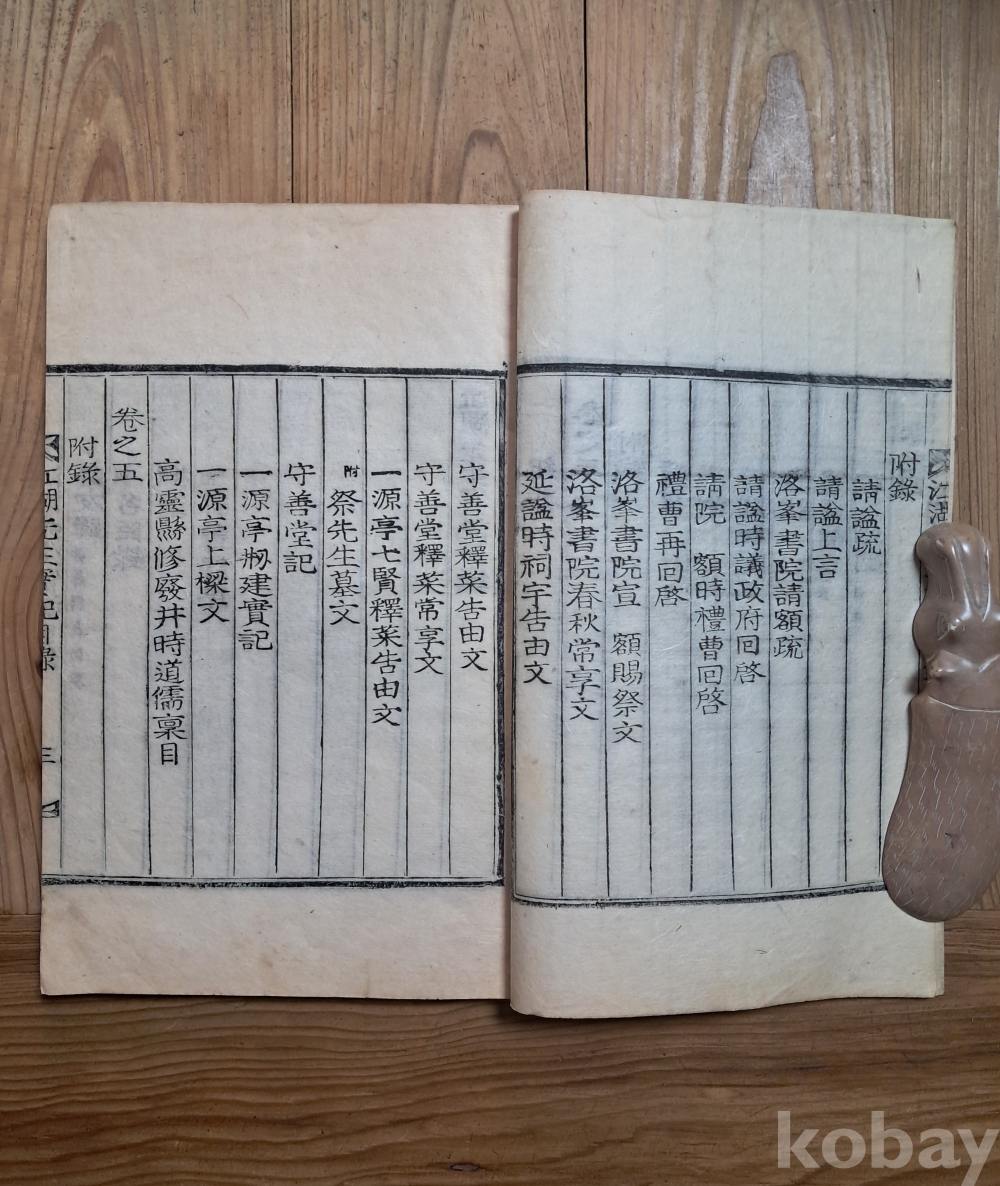 附錄
請謚疏
請謚上言
洛峯書院請額疏
請謚時議政府回啓
請院 額時禮曹回啓
禮曹再回啓
洛峯書院宣 額賜祭文
洛峯書院春秋常享文
延謚時祠宇告由文
守善堂釋菜告由文
守善堂釋菜常享文
一源亭七賢釋菜告由文
附 祭先生墓文
守善堂記
一源亭刱建實記
一源亭上樑文
高靈縣修廢井時道儒稟目
卷之五
附錄
江湖先生實記目錄
三
江湖
kobay